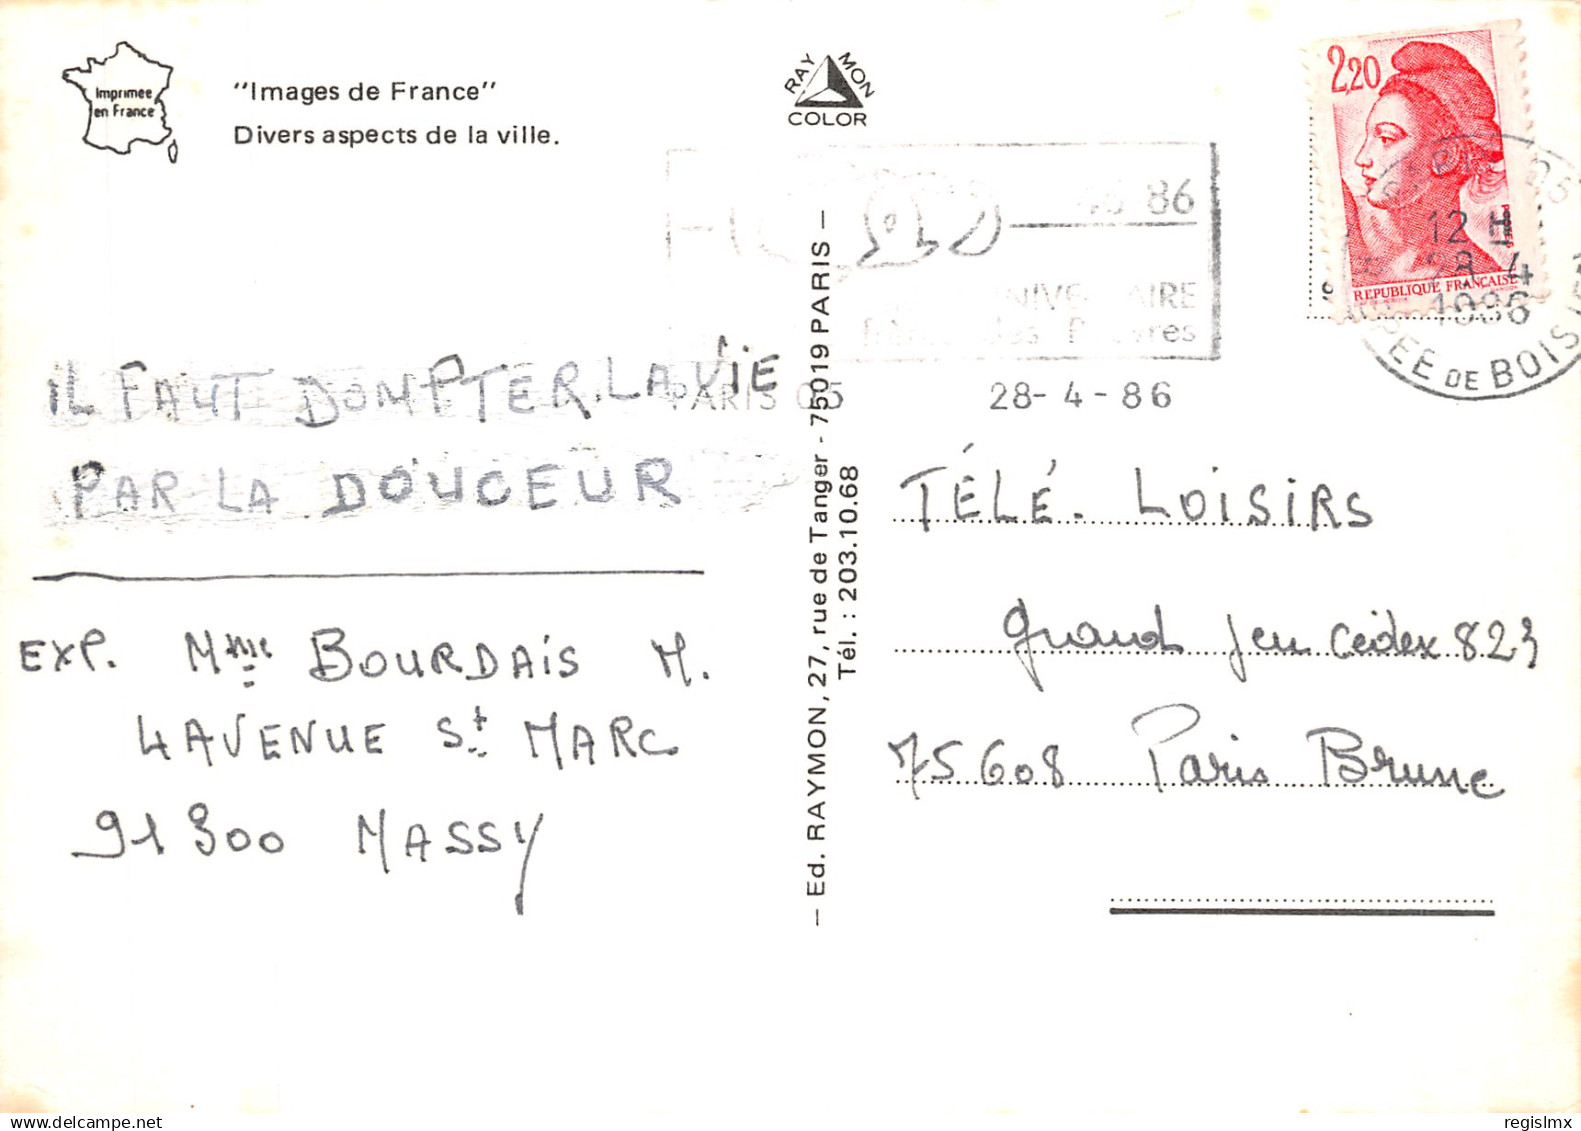 Imprimée
en France
"Images de France"
Divers aspects de la ville.
RAYMON
COLOR
2,20
RÉPUBLIQUE FRANÇAISE
12 H
28 4
1986
DE BOIS
46-86
des Pauvres
PARIS 05
28-4-86
IL FAUT DOMPTER LA VIE
PAR LA DOUCEUR
EXP. Mme BOURDAIS M.
4 AVENUE St MARC
91300 MASSY
— Ed. RAYMON, 27, rue de Tanger - 75019 PARIS —
Tél. : 203.10.68
TÉLÉ. LOISIRS
Grand Jeu Cedex 823
75608 Paris Brune
regislmx